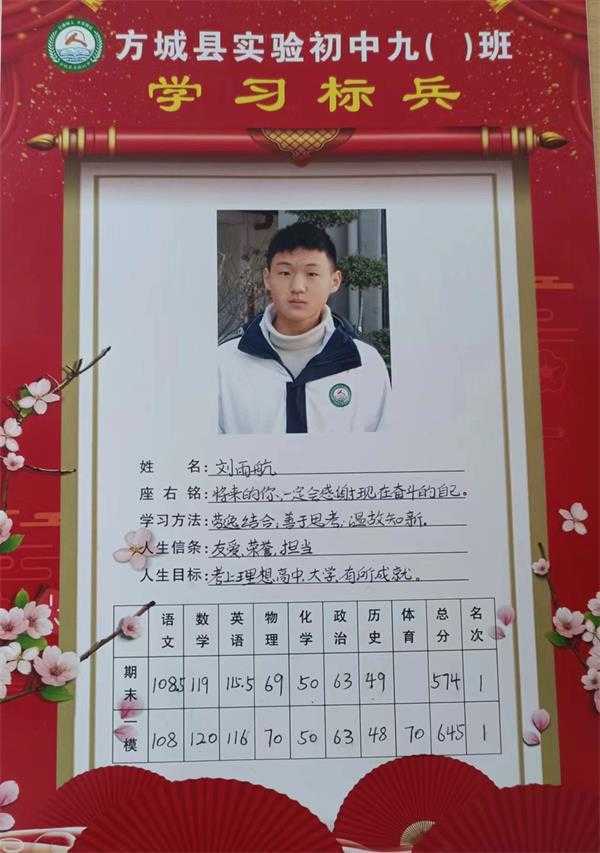 方城县实验初中九( )班
学习标兵
姓 名：刘雨航
座右铭：将来的你，一定会感谢现在奋斗的自己。
学习方法：劳逸结合，善于思考，温故知新。
人生信条：友爱，荣誉，担当
人生目标：考上理想高中，大学，有所成就。
语文 数学 英语 物理 化学 政治 历史 体育 总分 名次
期末 108.5 119 115.5 69 50 63 49 574 1
一模 108 120 116 70 50 63 48 70 645 1